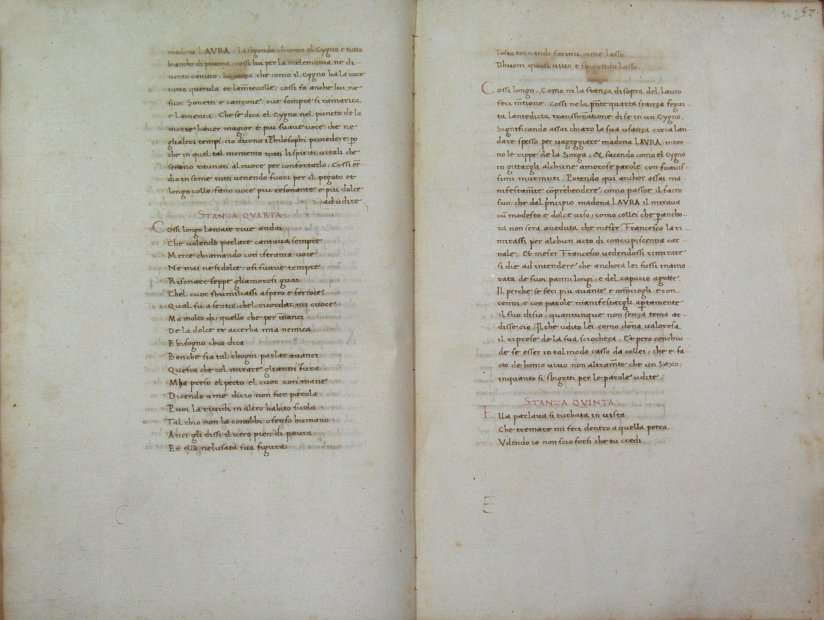 madona LAVRA. la segonda di como el Cygno e tutto
biancho di piuma, cossi lui per la melenconia ne di
vento canuto. la terza che como il Cygno ha la voce
rara querula et lamẽtevolle, cossi fa anche lui, ne
suoi Sonetti e canzone, ove sempre si ramarica
e lamenta. Che se dica el Cygno nel puncto de la
morte haver magior e piu suave voce, che ne
gualtri tempi cio dicono i Philosophi procedere, po
che in quel tal momento tutti li spiriti vitali che
serano raunati al cuore per confortarlo. Cossi eẽ
do in seme tutti uenendo fuori per il pegato et
longo collo, fano voce piu resonante e piu dolce
ad udite.
STANZA QVARTA
Cossi longo lamate rive andai
Che volendo parlare cantava sempre
Merce chiamando con istrania voce
Ne mai ne si dolce, o si suave tempre
Risonare seppe gliamorosi guai
Chel cuor shumiliassi aspero e feroce
Qual fu a sentir, chel ricordar mi cuoce
Ma molto di quello che per inanci
De la dolce et accerba mia nemica
E bisogno chio dica
Ben che sia tal chogni parlar avanci
Questa che col mirare gianimi fura
Mha perso el pecto el cuor con mane
Dicendo a me dicio non far parola
E vuol la rividi in altro habito suola
Tal chio non la conobbi o senso humano
Anci gli dissi il vero pien di paura
Et ella nel usata sua figura
Tosto tornando fecimi oime lasso
Dhuom quasi vivo e sbigottito sasso.
Cossi longo. Como ni la stanza di sopra del lauro
feci mitione. Cossi ne la pñte quarta stanza segui
ta lantedicta transforatione di se in un Cygno,
Significando assai chiaro la sua usanza circa lan
dare spesso per vagegiare madona LAVRA, intor
no le rippe de la Sorga, Et facendo como el Cygno
in gittargli alchune amorose parole con suavis
simi murmuri. Potendo qui anchor assai ma
nifestamẽte cõprehendere, como passoe il facto
suo, che dal principio madona LAVRA il mirava
cũ modesto e dolce viso, como collei che pancho
ra non sera aveduta che meser Francesco la ri
mirassi per alchun acto di concupiscentia car
nale. Et meser Francesco vedendossi rimirare
si die ad intendere che anchora lei fussi inamo
rata de suoi panni longi, e del capucio a gotte.
Il perche se feci piu avante e cõmiciogli e con
cenni e con parole manifestargli apertamente
il suo disio, quantunque non senza tema ar
dissecio. Il che udito lei como dona valorosa
il riprese de la sua sciocheza. Et pero conchiu
de se esser in tal modo casso da collei, che e fa
cto de homo vivo non altramẽte che un Saxo,
inquanto si sbigoti per le parole udite.
STANZA QVINTA
Ella parlava si turbata in vista
Che tremare mi feci dentro a quella petra
Vdendo io non scio forsi che tu credi